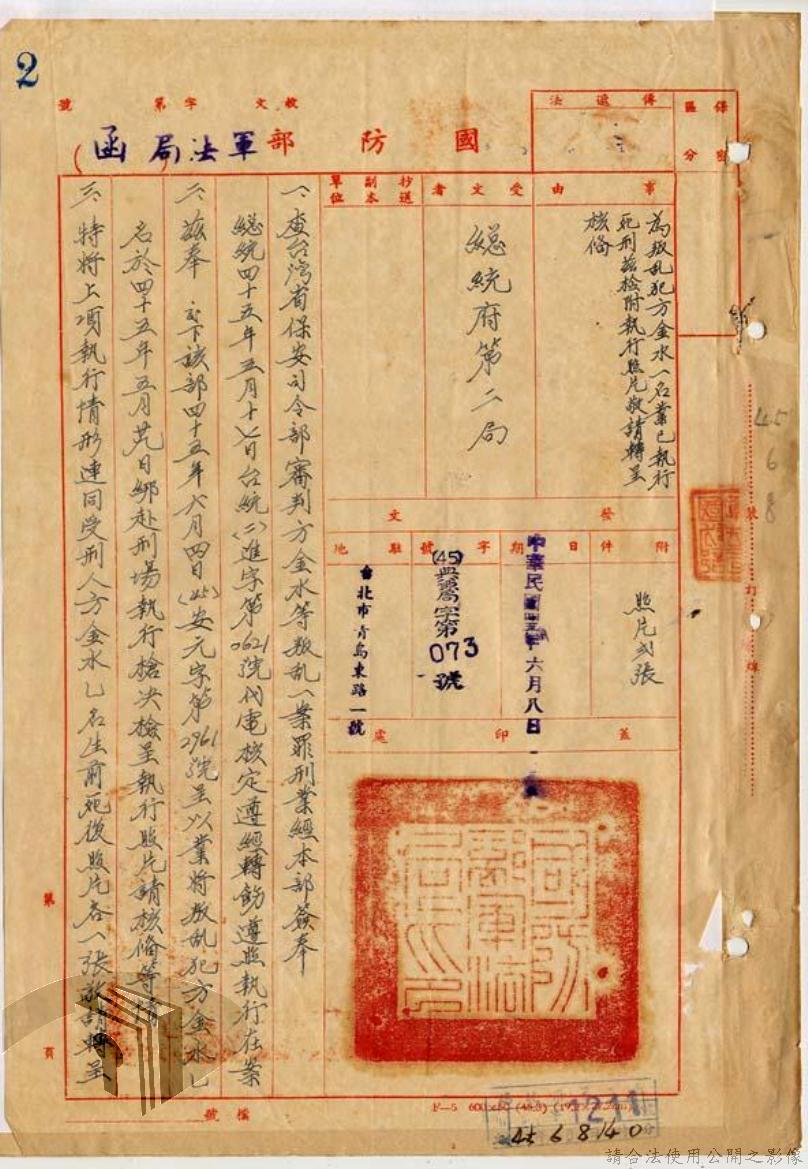 2
保密區分
傳遞法
國防部軍法局(函)
收文字第　號
事由
為叛乱犯方金水一名業已執行
死刑茲檢附執行照片敬請轉呈
核備
受文者
總統府第二局
抄送副本單位
附件
照片弍張
發文
日期
中華民國四五年六月八日
字號
(45)典局字第073號
駐地
台北市青島東路一號
蓋印處
一、查台湾省保安司令部審判方金水等叛乱一案罪刑業經本部簽奉
總統四十五年五月十七日台統(二)進字第0621號代電核定遵經轉飭遵照執行在案
二、茲奉 交下該部四十五年六月四日(45)安元字第2961號呈以業將叛乱犯方金水乙
名於四十五年五月卅日綁赴刑場執行槍决檢呈執行照片請核備等情
三、特將上項執行情形連同受刑人方金水乙名生前死後照片各一張敬請轉呈
裝訂線
45
6
8
第　頁
檔號
1211
45 6 8 14 0
請合法使用公開之影像